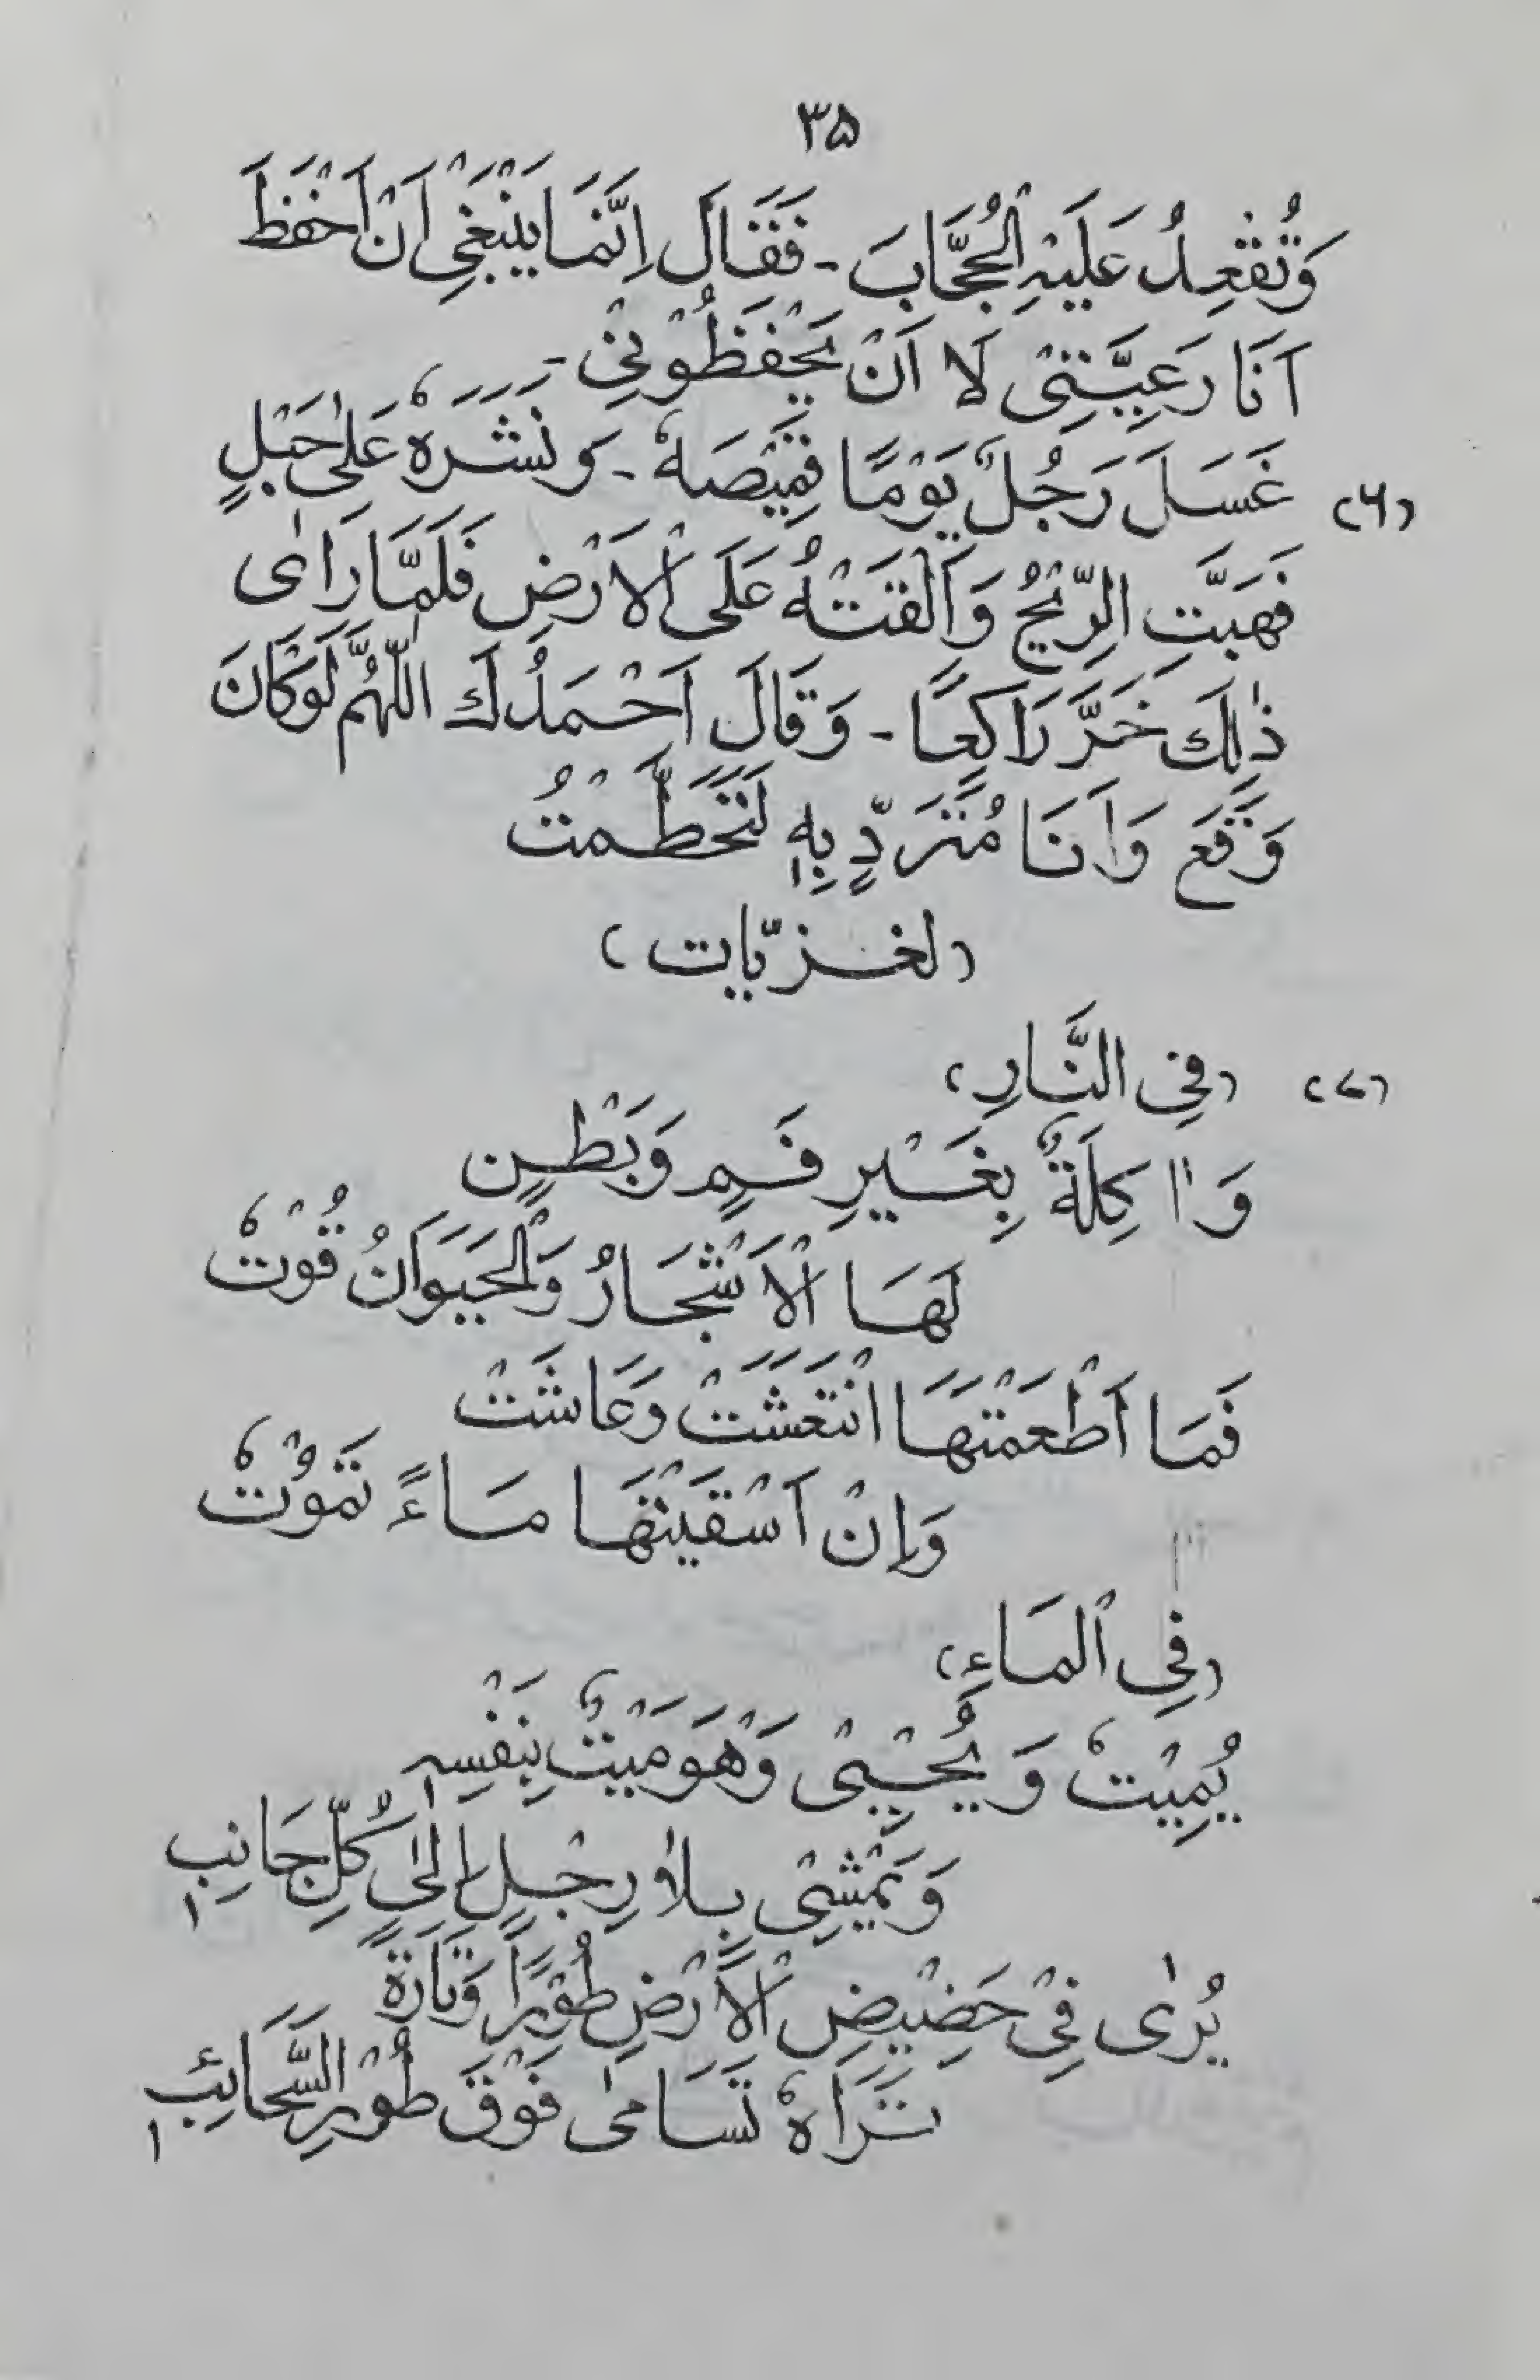 ۳۵
وَتُقْعِدُ عَلَيْهِ الْحُجَّابَ - فَقَالَ اِنَّمَا يَنْبَغِيْ اَنْ اَحْفَظَ
اَنَا رَعِيَّتِيْ لَا اَنْ يَحْفَظُوْنِيْ -
(۶) غَسَلَ رَجُلٌ يَوْمًا قَمِيْصَهٗ - وَنَشَرَهٗ عَلٰى حَبْلٍ
فَهَبَّتِ الرِّيْحُ وَاَلْقَتْهُ عَلَى الْاَرْضِ فَلَمَّا رَاٰى
ذٰلِكَ خَرَّ رَاكِعًا - وَقَالَ اَحْمَدُكَ اللّٰهُمَّ لَوْ كَانَ
وَقَعَ وَاَنَا مُتَرَدٍّ بِهٖ لَتَحَطَّمْتُ
(لغزيّات)
(۷) (فِي النَّارِ)
وَاٰكِلَةٌ بِغَيْرِ فَمٍ وَبَطْنٍ
لَهَا الْاَشْجَارُ وَالْحَيَوَانُ قُوْتٗ
فَمَا اَطْعَمْتَهَا انْتَعَشَتْ وَعَاشَتْ
وَاِنْ اَسْقَيْتَهَا مَاءً تَمُوْتٗ
(فِي الْمَاءِ)
يُمِيْتٗ وَيُحْيِيْ وَهْوَ مَيْتٌ بِنَفْسِهٖ
وَيَمْشِيْ بِلَاٰ رِجْلٍ اِلٰى كُلِّ جَانِبٖ
يُرٰى فِيْ حَضِيْضِ الْاَرْضِ طُوْرًا وَتَارَةً
تَرَاهٗ تَسَامٰى فَوْقَ طُوْرِ السَّحَائِبٖ